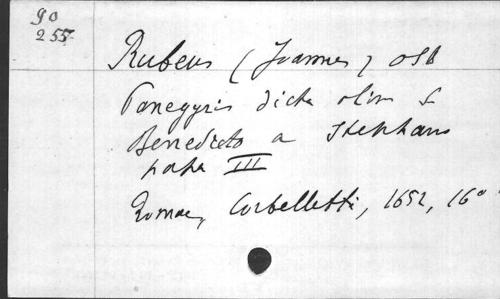 90
255
Rubeus (Joannes) OSB
Panegyris dicta olim S.
Benedicto a Stephano
papa III
Romae, Corbelletti, 1652, 16°